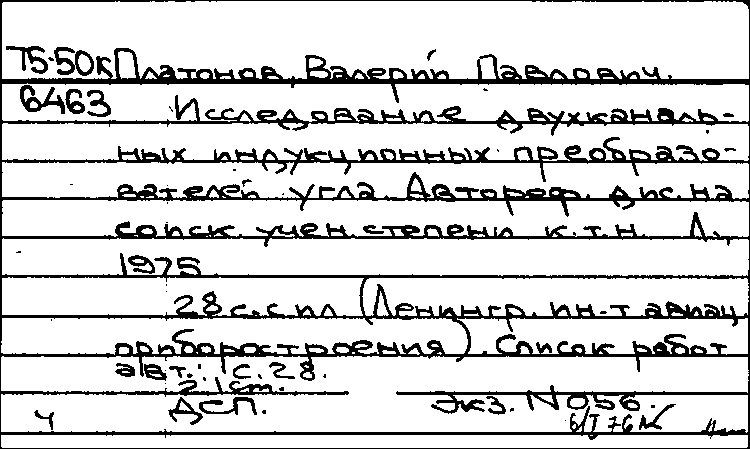 75-50к Платонов, Валерий Павлович.
6463 Исследование двухканаль-
ных индукционных преобразо-
вателей угла. Автореф. дис. на
соиск. учен. степени к.т.н. Л.,
1975
28 с. с ил. (Ленингр. ин-т авиац.
приборостроения). Список работ
авт.: с. 28.
2.1 ст.
ДСП. Экз. N 056.
ч 6/I 76